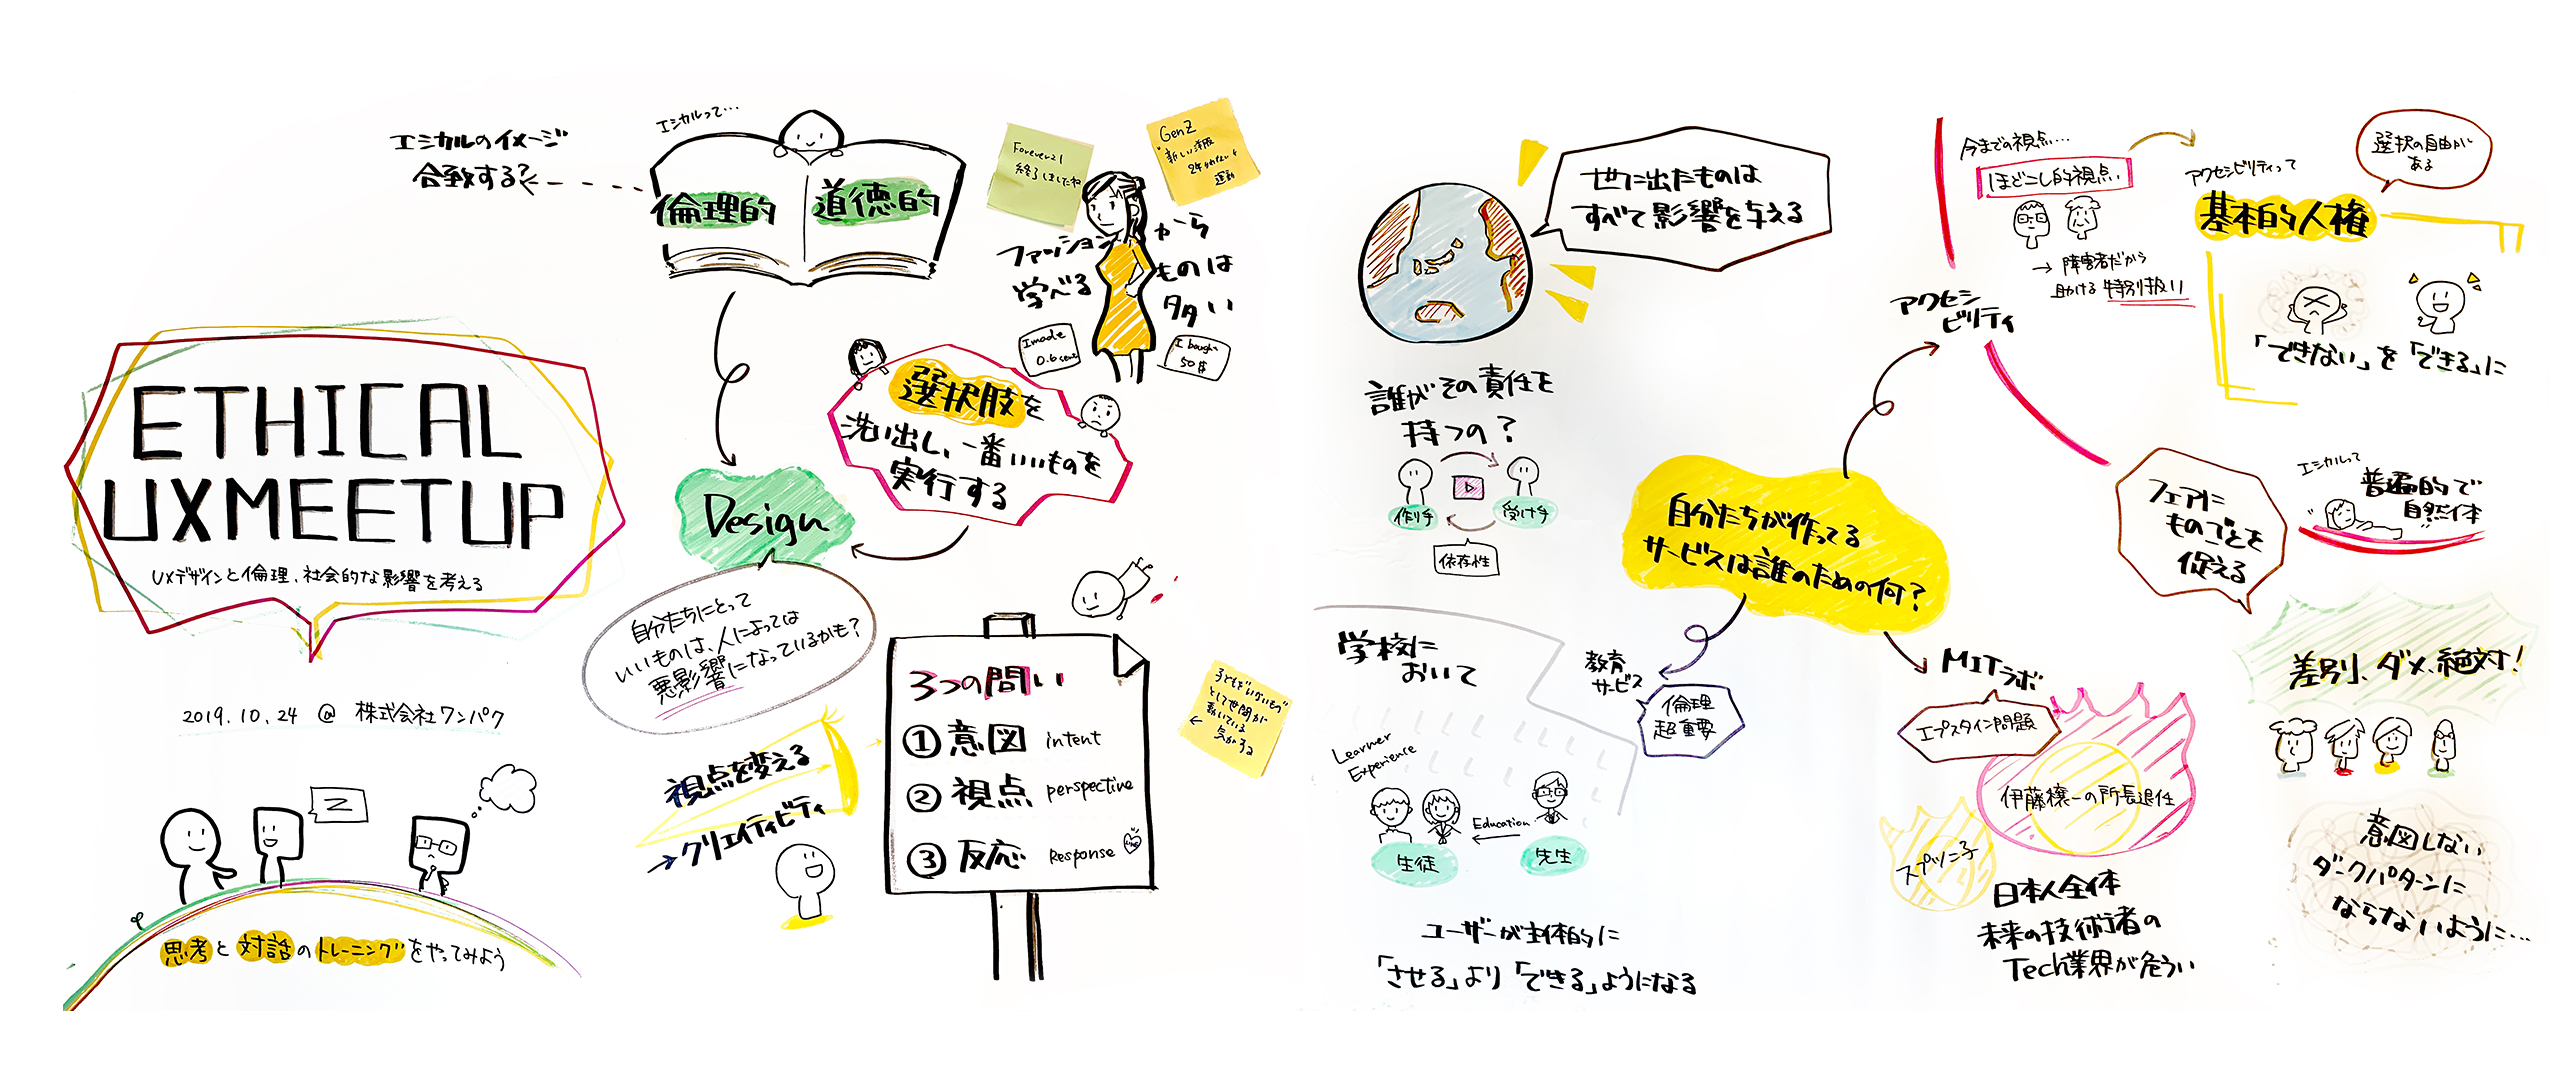 ETHICAL
UXMEETUP
UXデザインと倫理、社会的な影響を考える
2019.10.24 @ 株式会社ワンパク
思考と対話のトレーニングをやってみよう
エシカルのイメージ
合致する?
エシカルって…
倫理的
道徳的
Forever21
終了しましたね
GenZ
"新しい洋服
運動
ファッションから
学べるものは
多い
I made
0.6 cent
I bought
50$
選択肢を
洗い出し、一番いいものを
実行する
Design
自分たちにとって
いいものは、人によっては
悪影響になっているかも?
視点を変える
→クリエイティビティ
3つの問い
①意図 intent
②視点 perspective
③反応 Response
子ども"いないもの"
として世間が
動いている
気がする
世に出たものは
すべて影響を与える
誰がその責任を
持つの?
作り手
受け手
依存性
学校に
おいて
Learner
Experience
Education
生徒
先生
ユーザーが主体的に
「させる」より「できる」ようになる
自分たちが作ってる
サービスは誰のための何?
教育
サービス
倫理
超重要
アクセシ
ビリティ
今までの視点…
ほどこし的視点
→障害者だから
助ける 特別扱い
アクセシビリティって
基本的人権
選択の自由が
ある
「できない」を「できる」に
フェアに
ものごとを
捉える
エシカルって
普遍的で
自然体
差別、ダメ、絶対!
意図しない
ダークパターンに
ならないように…
MITラボ
エプスタイン問題
伊藤穰一の所長退任
スプツニ子
日本人全体
未来の技術者の
Tech業界が危うい